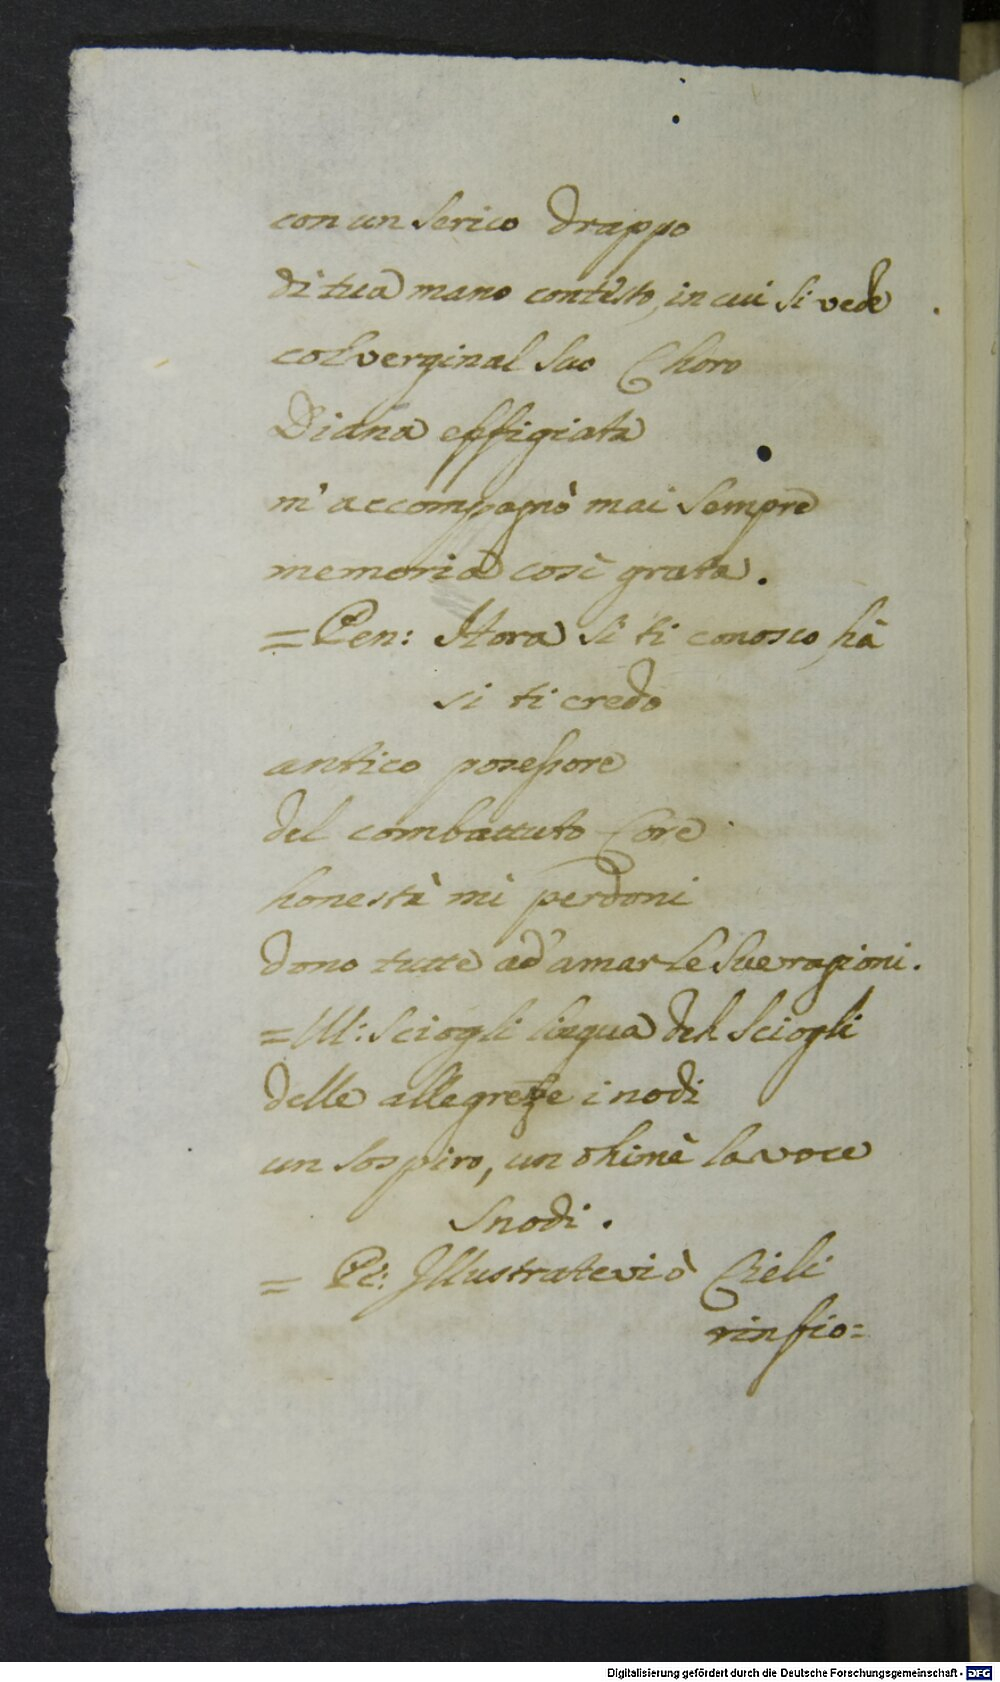 con un serico drappo
di tua mano contesto, in cui si vede
col verginal suo Choro
Diana effigiata
m'accompagnò mai sempre
memoria così grata.
= Pen: Hora si ti conosco, hà
si ti credo
antico posessore
del combattuto Core
honestà mi perdoni
dono tutte ad'amar le sue ragioni.
= Ul: Sciogli lingua deh sciogli
delle allegrezze i nodi
un sospiro, un ohimè la voce
snodi.
= Pe: Illustratevi ò Cieli
rinfio=
Digitalisierung gefördert durch die Deutsche Forschungsgemeinschaft - DFG